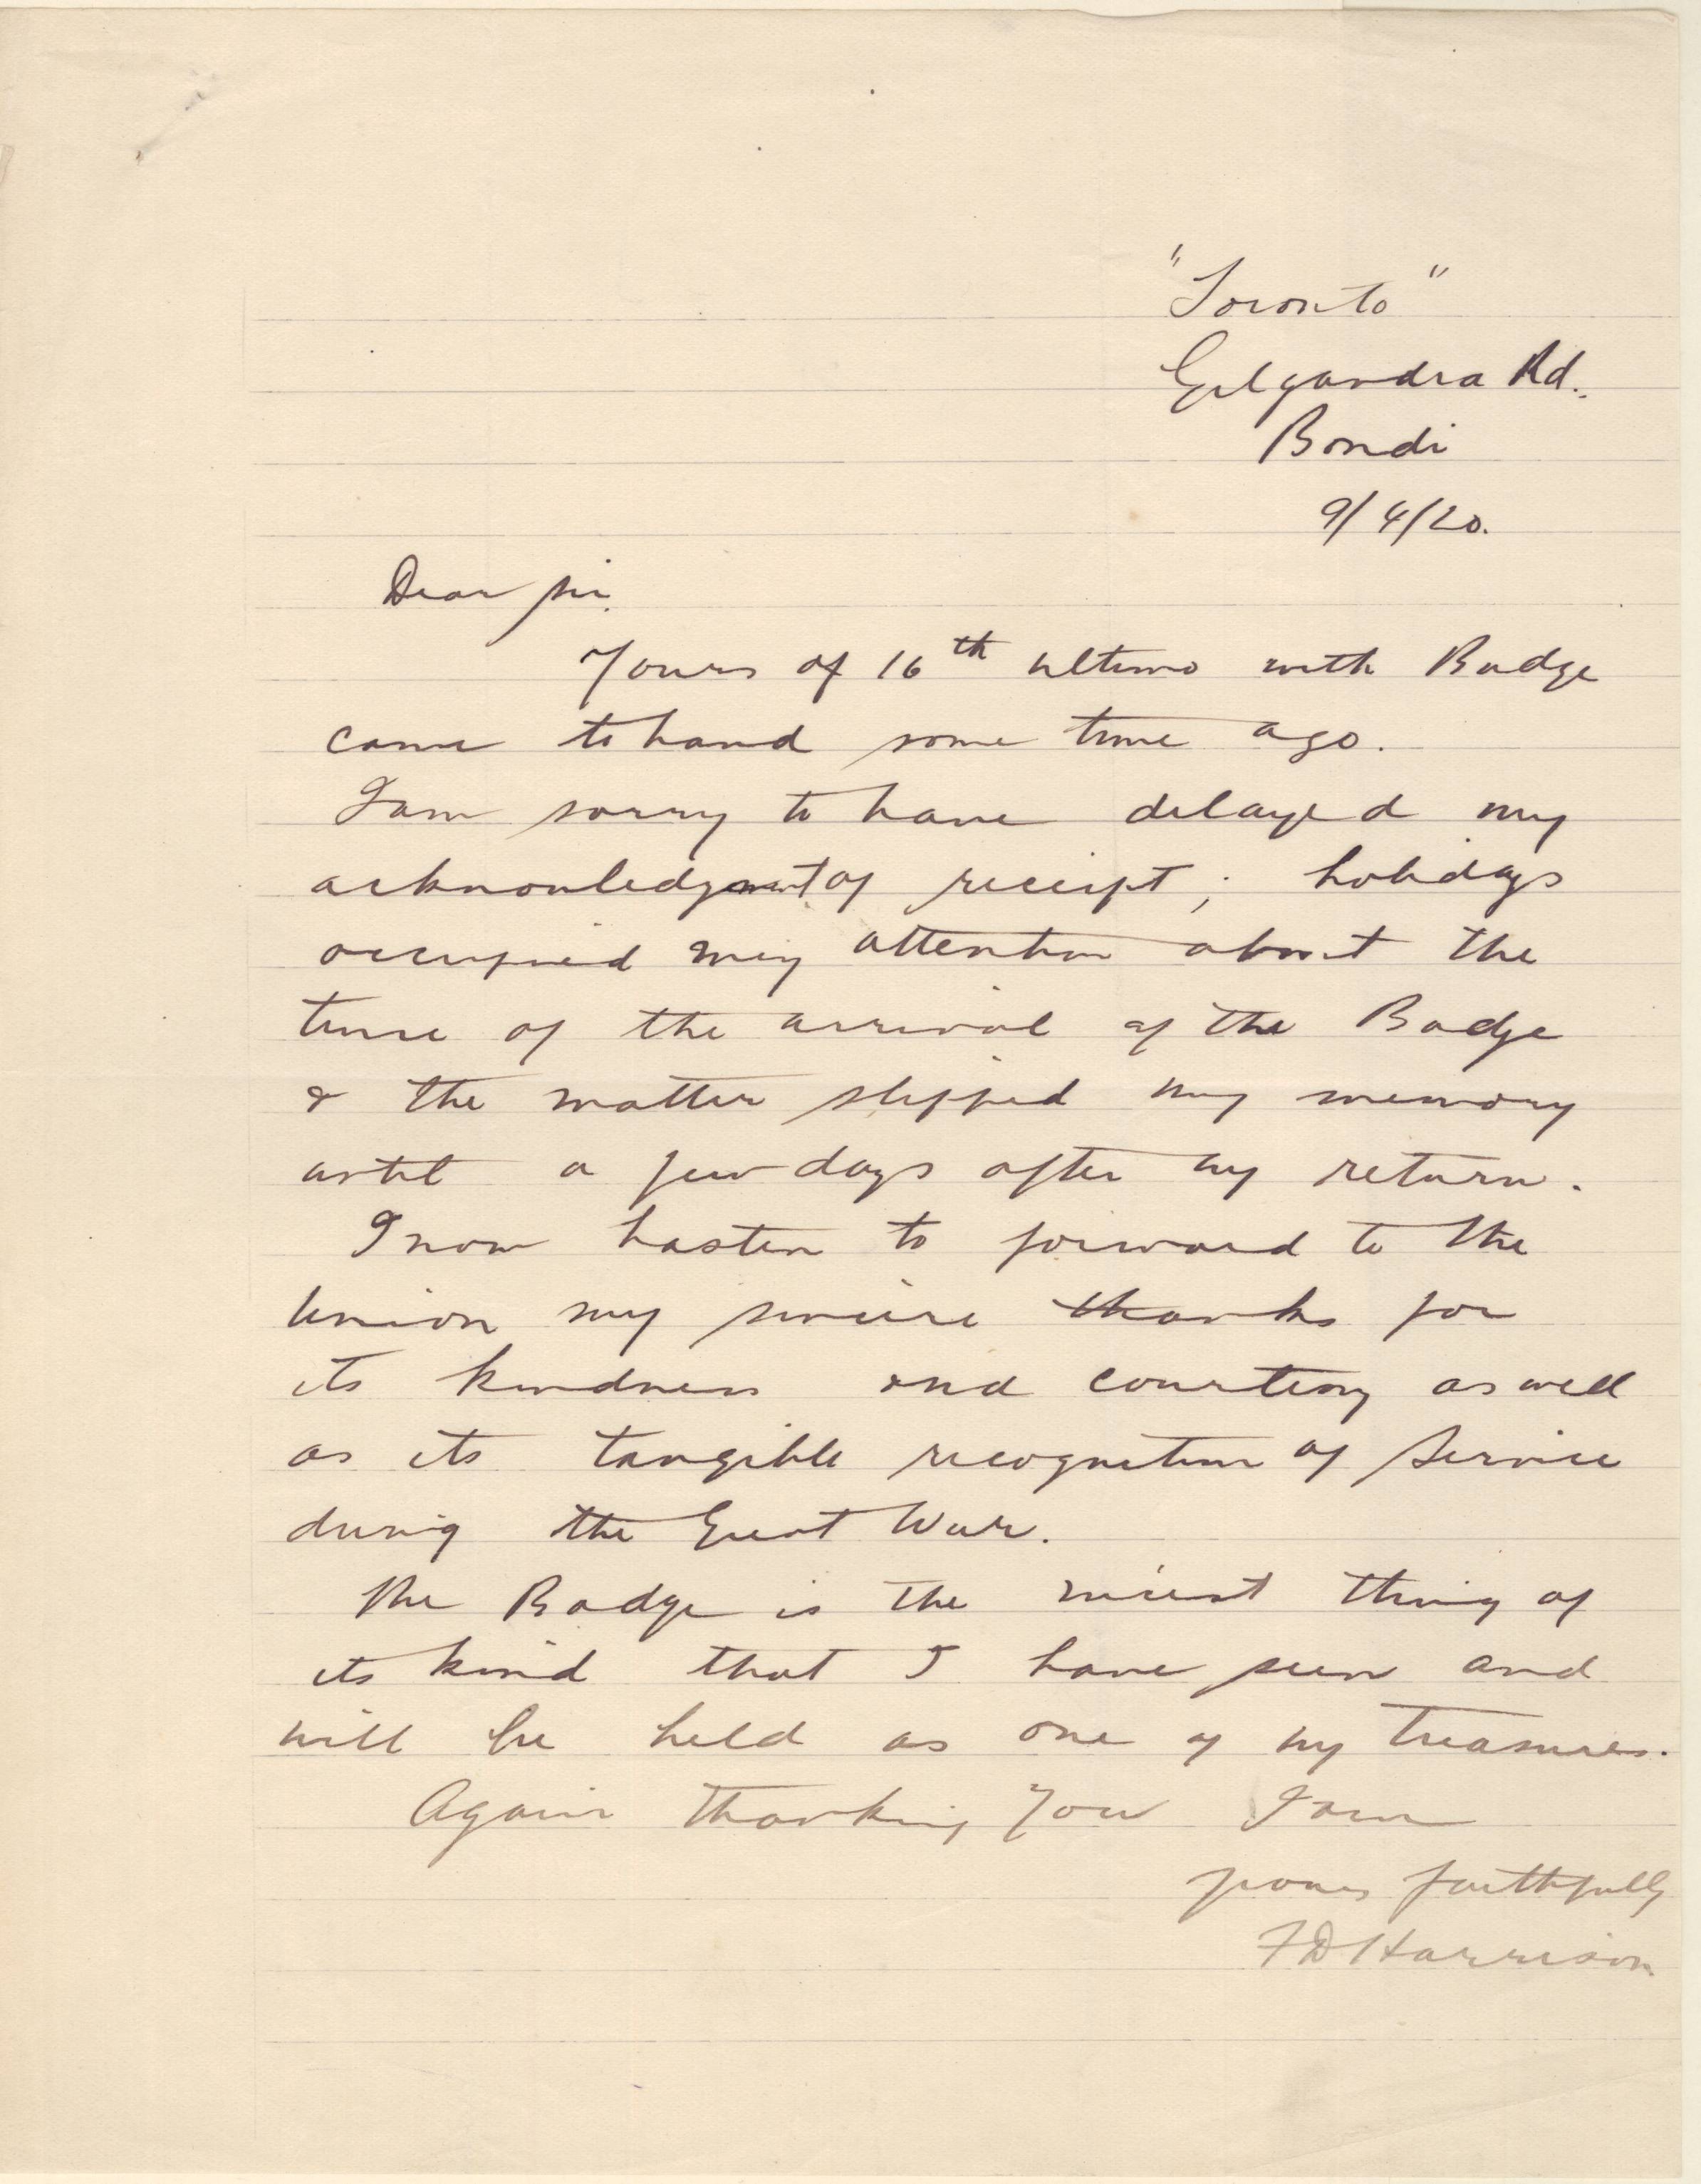 "Toronto"
Gilgandra Rd.
Bondi
9/4/20.
Dear Sir.
Yours of 16th ultimo with Badge
came to hand some time ago.
I am sorry to have delayed my
acknowledgment of receipt; holidays
occupied my attention about the
time of the arrival of the Badge
& the matter slipped my memory
until a few days after my return.
I now hasten to forward to the
Union my sincere thanks for
its kindness and courtesy as well
as its tangible recognition of Service
during the Great War.
The Badge is the nicest thing of
its kind that I have seen and
will be held as one of my treasures.
Again thanking You I am
yours faithfully
FD Harrison